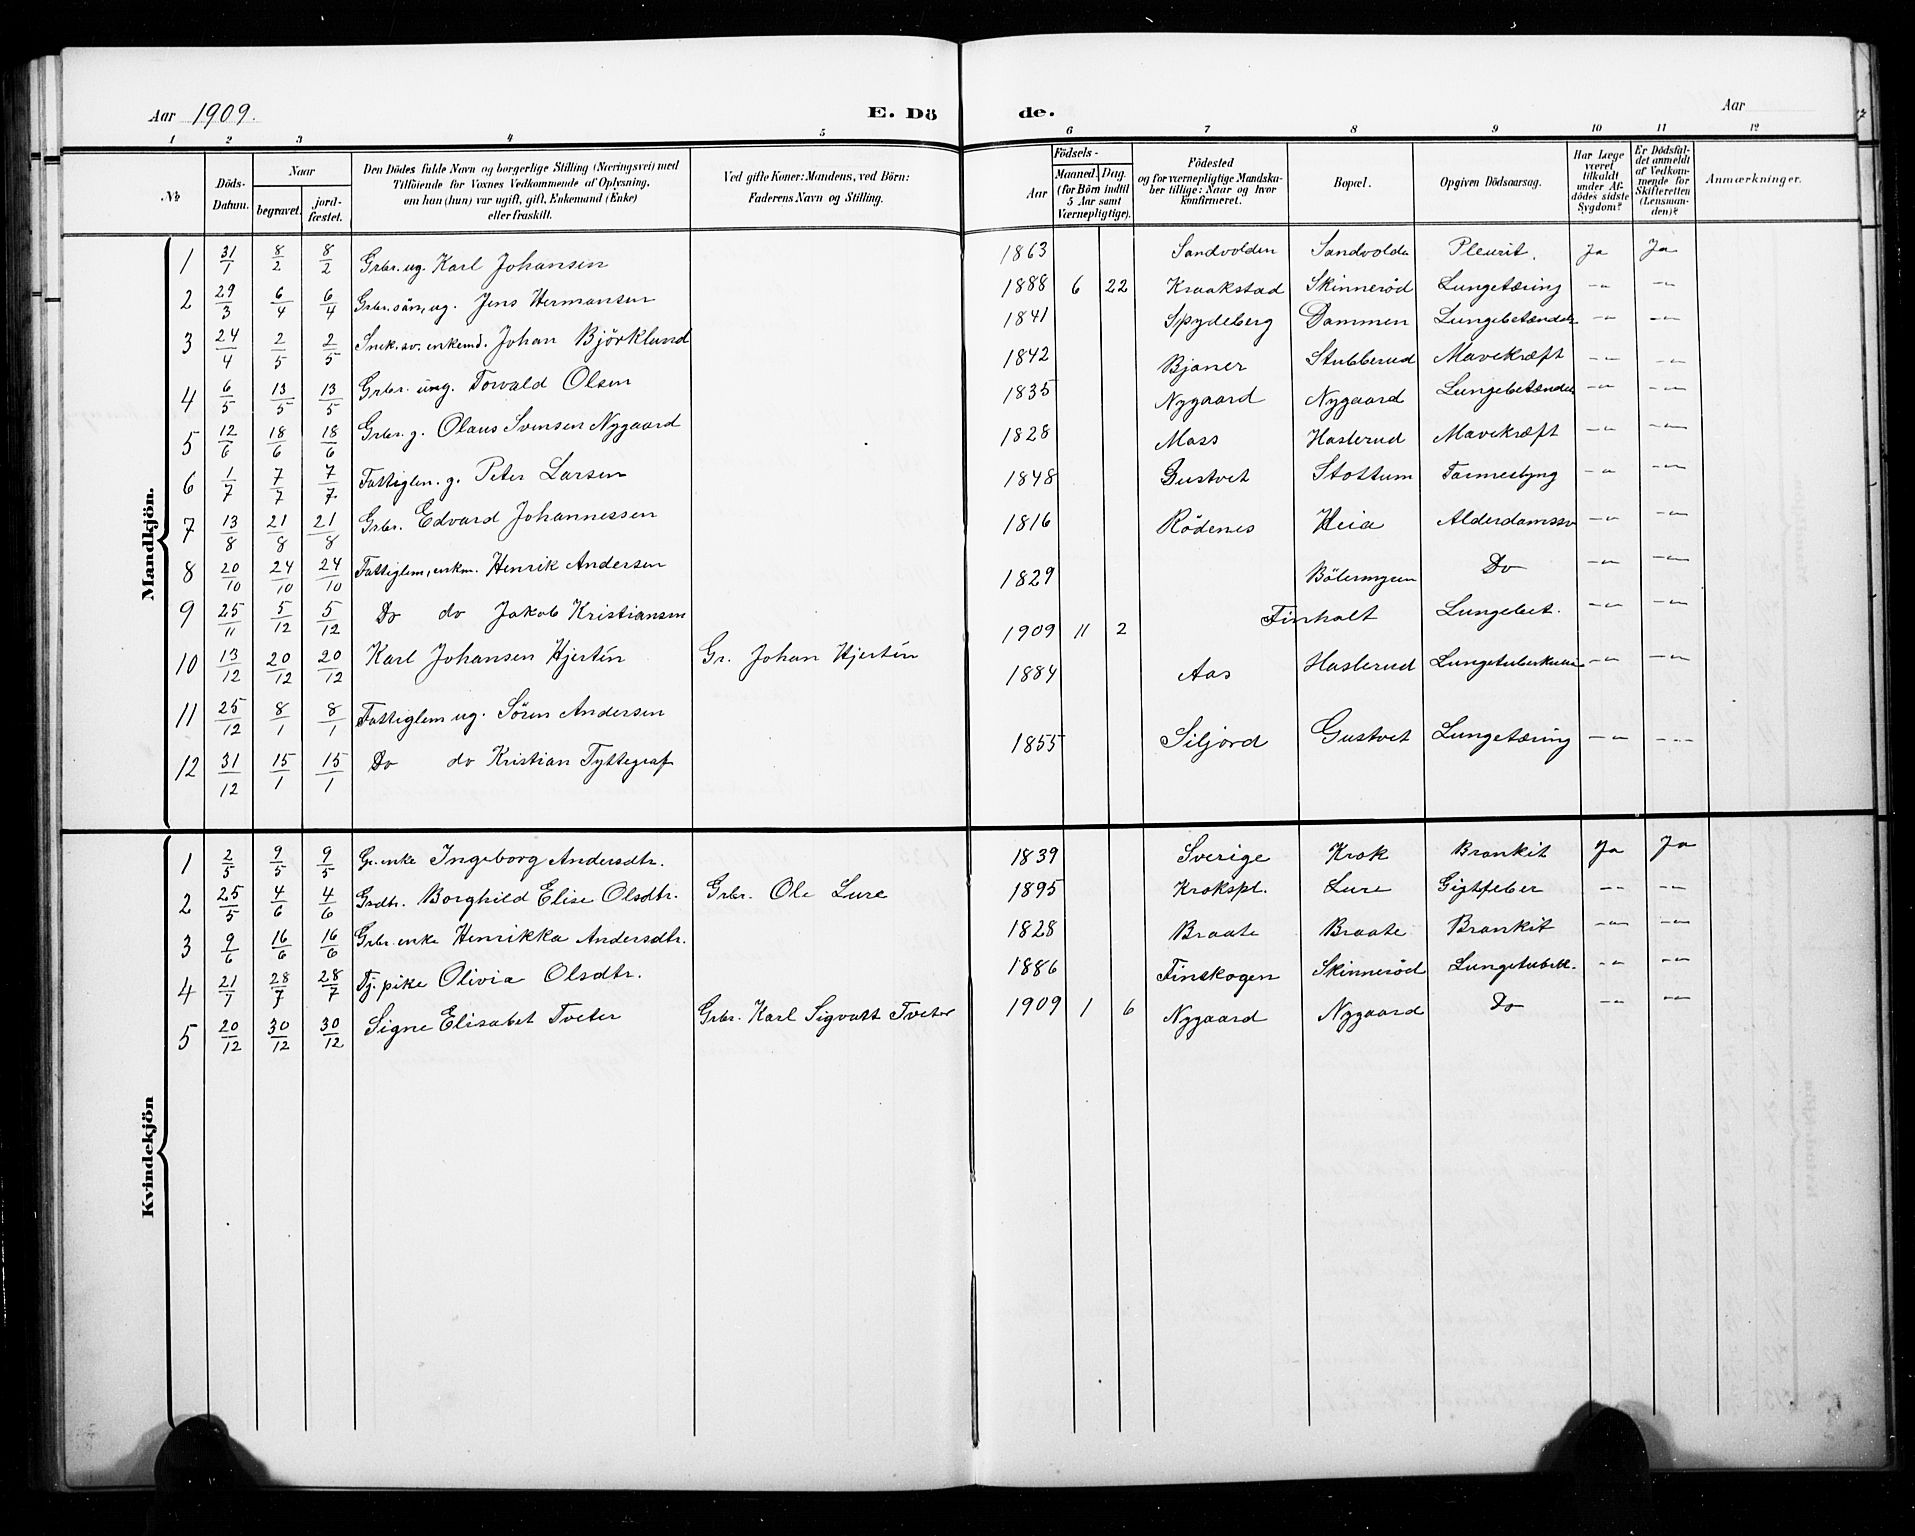 Aar 1909. E. Dö de. Aar
1 2 3 4 5 6 7 8 9 10 11 12
№ Döds-Datum. Naar begravet. jord-fæstet. Den Dödes fulde Navn og borgerlige Stilling (Næringsvei) med Tilföiende for Voxnes Vedkommende af Oplysning, om han (hun) var ugift, gift, Enkemand (Enke) eller fraskilt. Ved gifte Koner: Mandens, ved Börn: Faderens Navn og Stilling. Födsels- Aar Maaned. Dag. (for Börn indtil 5 Aar samt Værnepligtige). Födested og for værnepligtige Mandskaber tillige: Naar og hvor konfirmeret. Bopæl. Opgiven Dödsaarsag. Har Læge været tilkaldt under Afdödes sidste Sygdom? Er Dödsfaldet anmeldt af Vedkommende for Skifteretten (Lensmanden)? Anmærkninger.
Mandkjön.
1 31/1 8/2 8/2 Grbr. ug. Karl Johansen 1863 Sandvolden Sandvolde Pleurit. Ja Ja
2 29/3 6/4 6/4 Grbr. sön, ug. Jens Hermansen 1888 6 22 Kraakstad Skinneröd Lungetæring -"- -"-
3 24/4 2/5 2/5 Snek. sv. enkemd. Johan Björklund 1841 Spydeberg Dammen Lungebetændels -"- -"-
4 6/5 13/5 13/5 Grbr. ung. Torvald Olsen 1842 Bjaner Stubberud Mavekræft -"- -"-
5 12/6 18/6 18/6 Grbr. g. Olaus Svensen Nygaard 1835 Nygaard Nygaard Lungebetændel -"- -"-
6 1/7 7/7 7/7 Fattiglem. g. Peter Larsen 1828 Moss Haslerud Mavekræft -"- -"-
7 13/8 21/8 21/8 Grbr. Edvard Johannessen 1848 Gustvet Stottum Tarmeslyng -"- -"-
8 20/10 24/10 24/10 Fattiglem, enkm. Henrik Andersen 1816 Rödenes Heia Alderdomssv -"- -"-
9 25/11 5/12 5/12 Do do Jakob Kristiansen 1829 Bölermyren Do -"- -"-
10 13/12 20/12 20/12 Karl Johansen Hjertén Gr. Johan Hjertén 1909 11 2 Finholt Lungebet. -"- -"-
11 25/12 8/1 8/1 Fattiglem ug. Sören Andersen 1884 Aas Haslerud Lungetuberkulo -"- -"-
12 31/12 15/1 15/1 Do do Kristian Tyttegraf 1855 Siljord Gustvet Lungetæring -"- -"-
Kvindekjön
1 2/5 9/5 9/5 Gr. enke Ingeborg Andersdtr. 1839 Sverige Krok Bronkit Ja Ja
2 25/5 4/6 4/6 Grdtr. Borghild Elise Olsdtr. Grbr. Ole Lure 1895 Krokspl. Lure Gigtfeber -"- -"-
3 9/6 16/6 16/6 Grbr. enke Henrikka Andersdtr. 1828 Braate Braate Bronkit -"- -"-
4 21/7 28/7 28/7 Tj. pike Olivia Olsdtr. 1886 Finskogen Skinneröd Lungetubek. -"- -"-
5 20/12 30/12 30/12 Signe Elisabet Tveter Grbr. Karl Sigvart Tveter 1909 1 6 Nygaard Nygaard Do -"- -"-